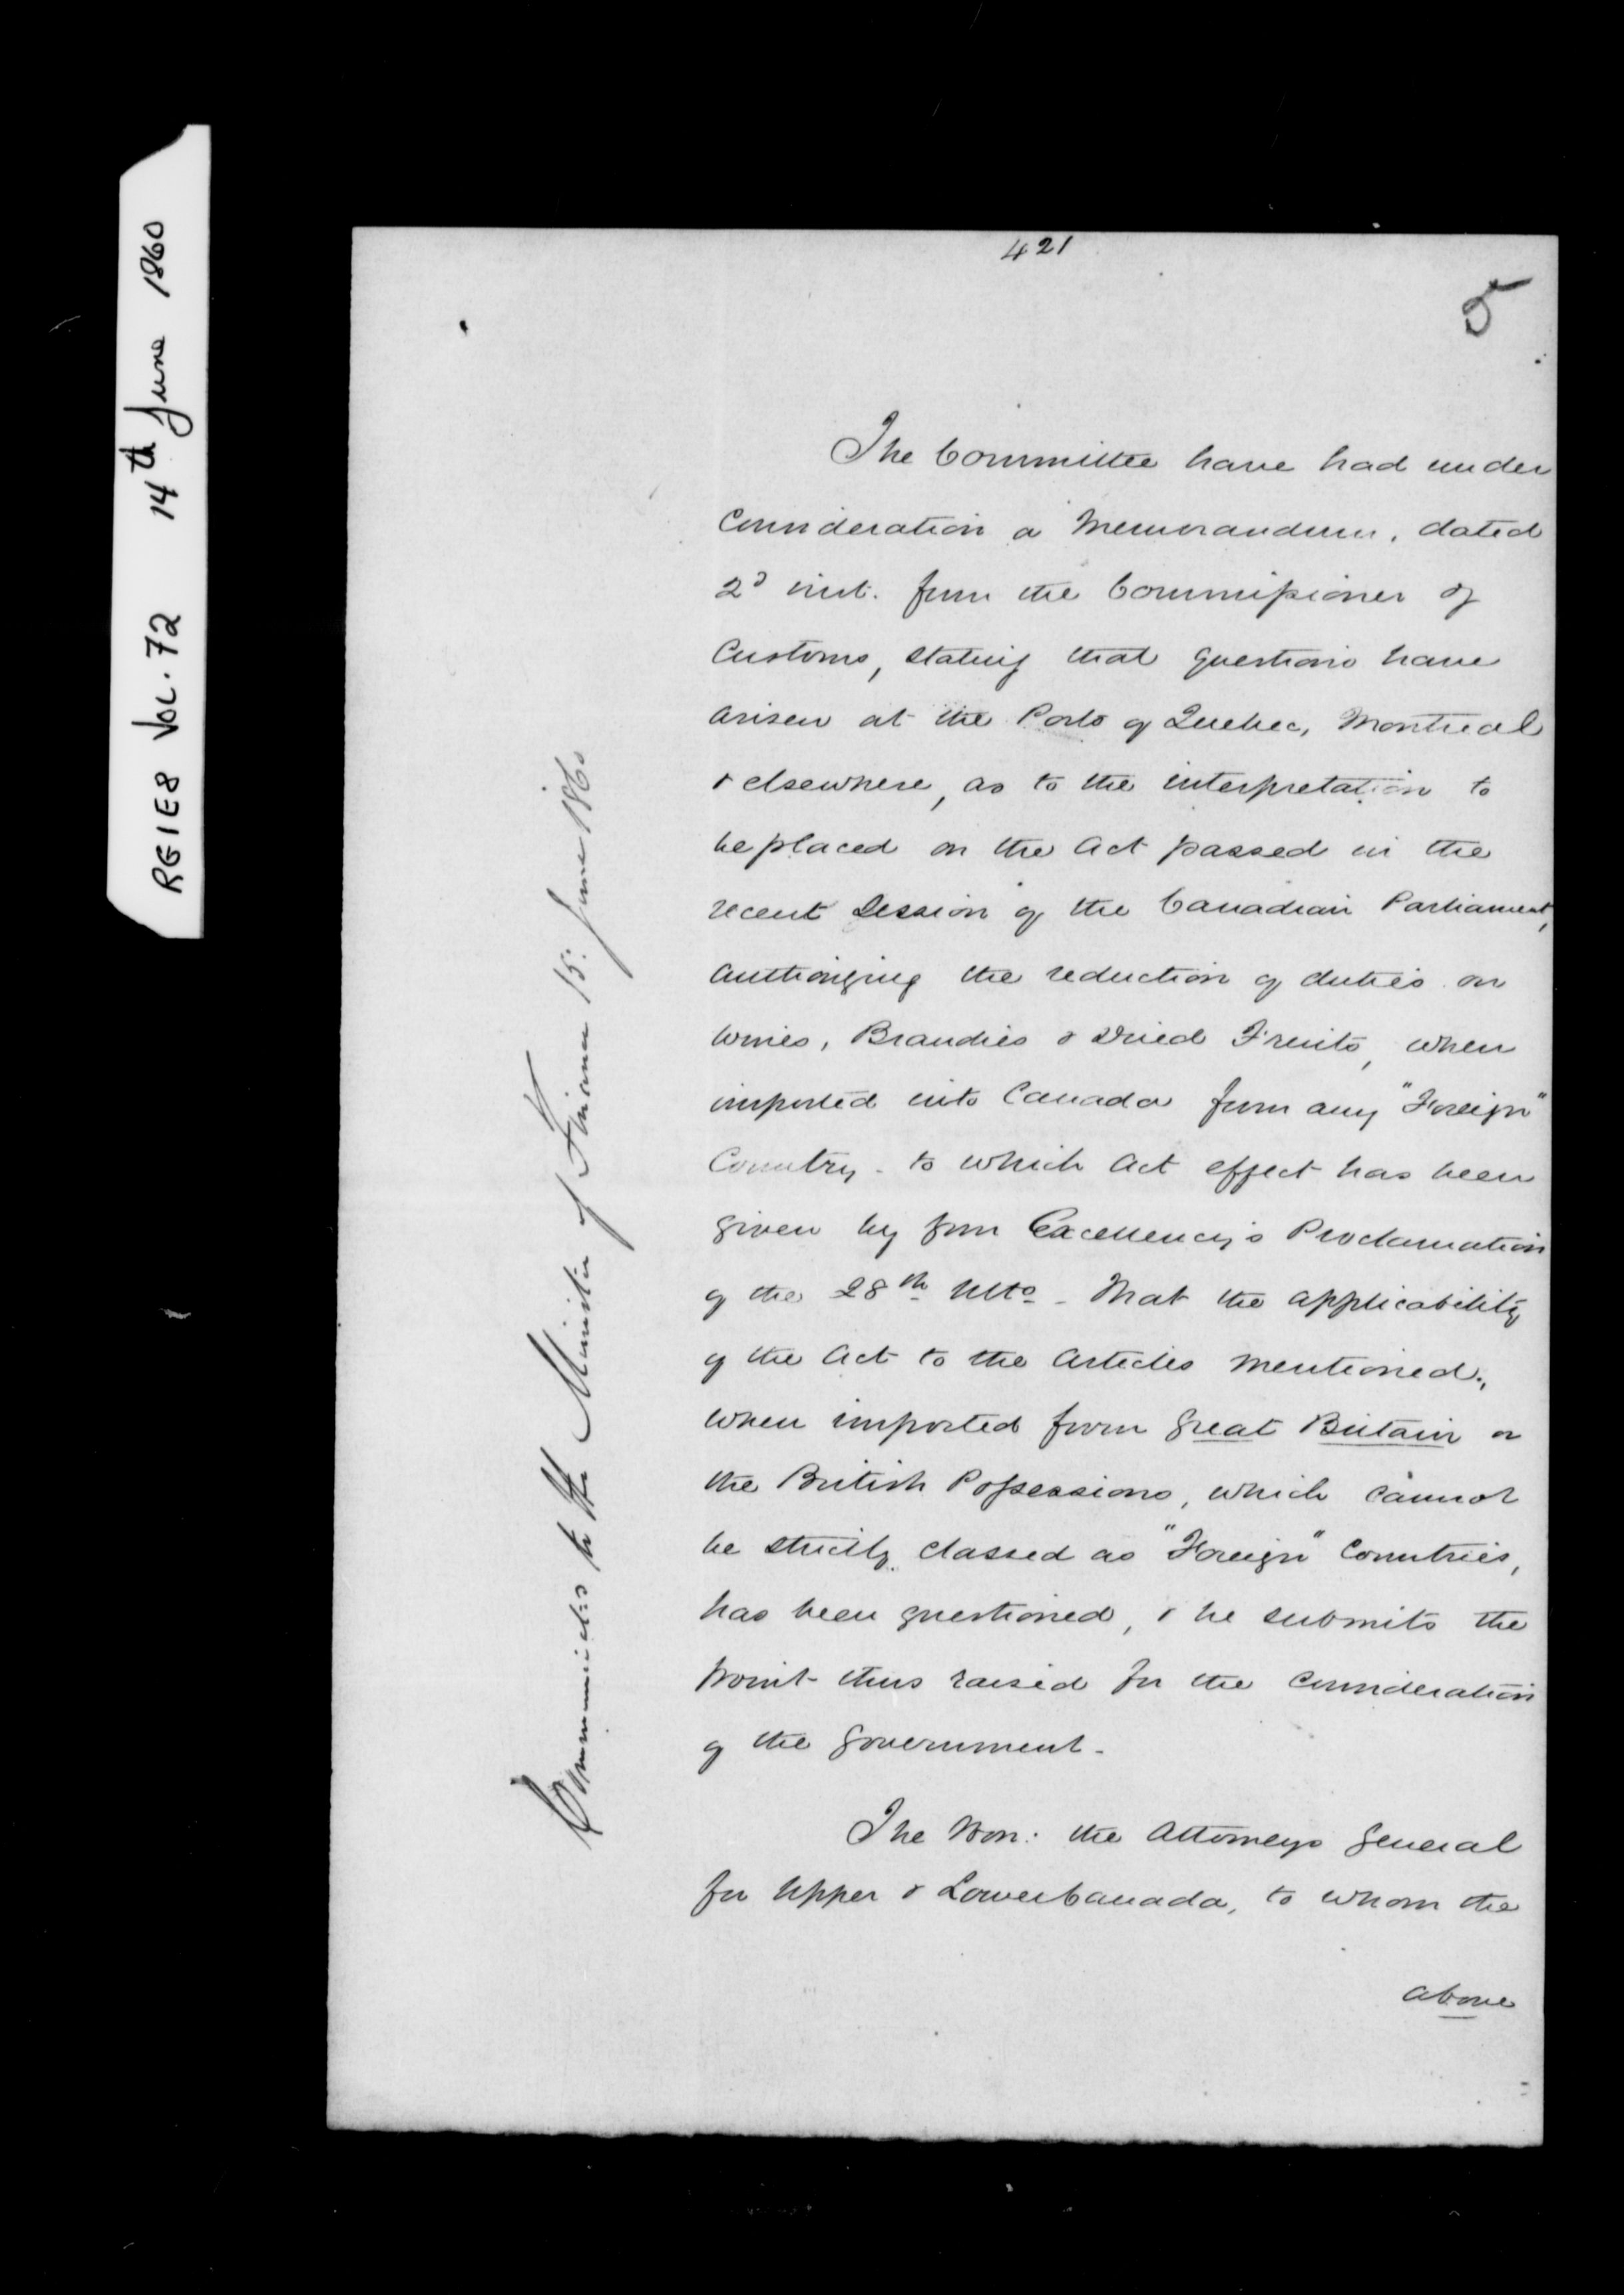 RG1E8 VOL. 72 14th June 1860
421
5
The Committee have had under
Consideration a Memorandum, dated
2d inst. from the Commissioner of
Customs, stating that questions have
arisen at the Ports of Quebec, Montreal
& elsewhere, as to the interpretation to
be placed on the Act passed in the
recent Session of the Canadian Parliament,
authorizing the reduction of duties on
Wines, Brandies & Dried Fruits, when
imported into Canada from any "Foreign"
Country - to which Act effect has been
given by Your Excellency's Proclamation
of the 28th Ulto - That the applicability
of the Act to the Articles mentioned,
when imported from Great Britain or
the British Possessions, which cannot
be strictly classed as "Foreign" Countries,
has been questioned, & he submits the
point thus raised for the Consideration
of the Government.
The Hon: the Attorneys General
for Upper & Lower Canada, to whom the
above
Communicated to the Minister of Finance 15. June 1860